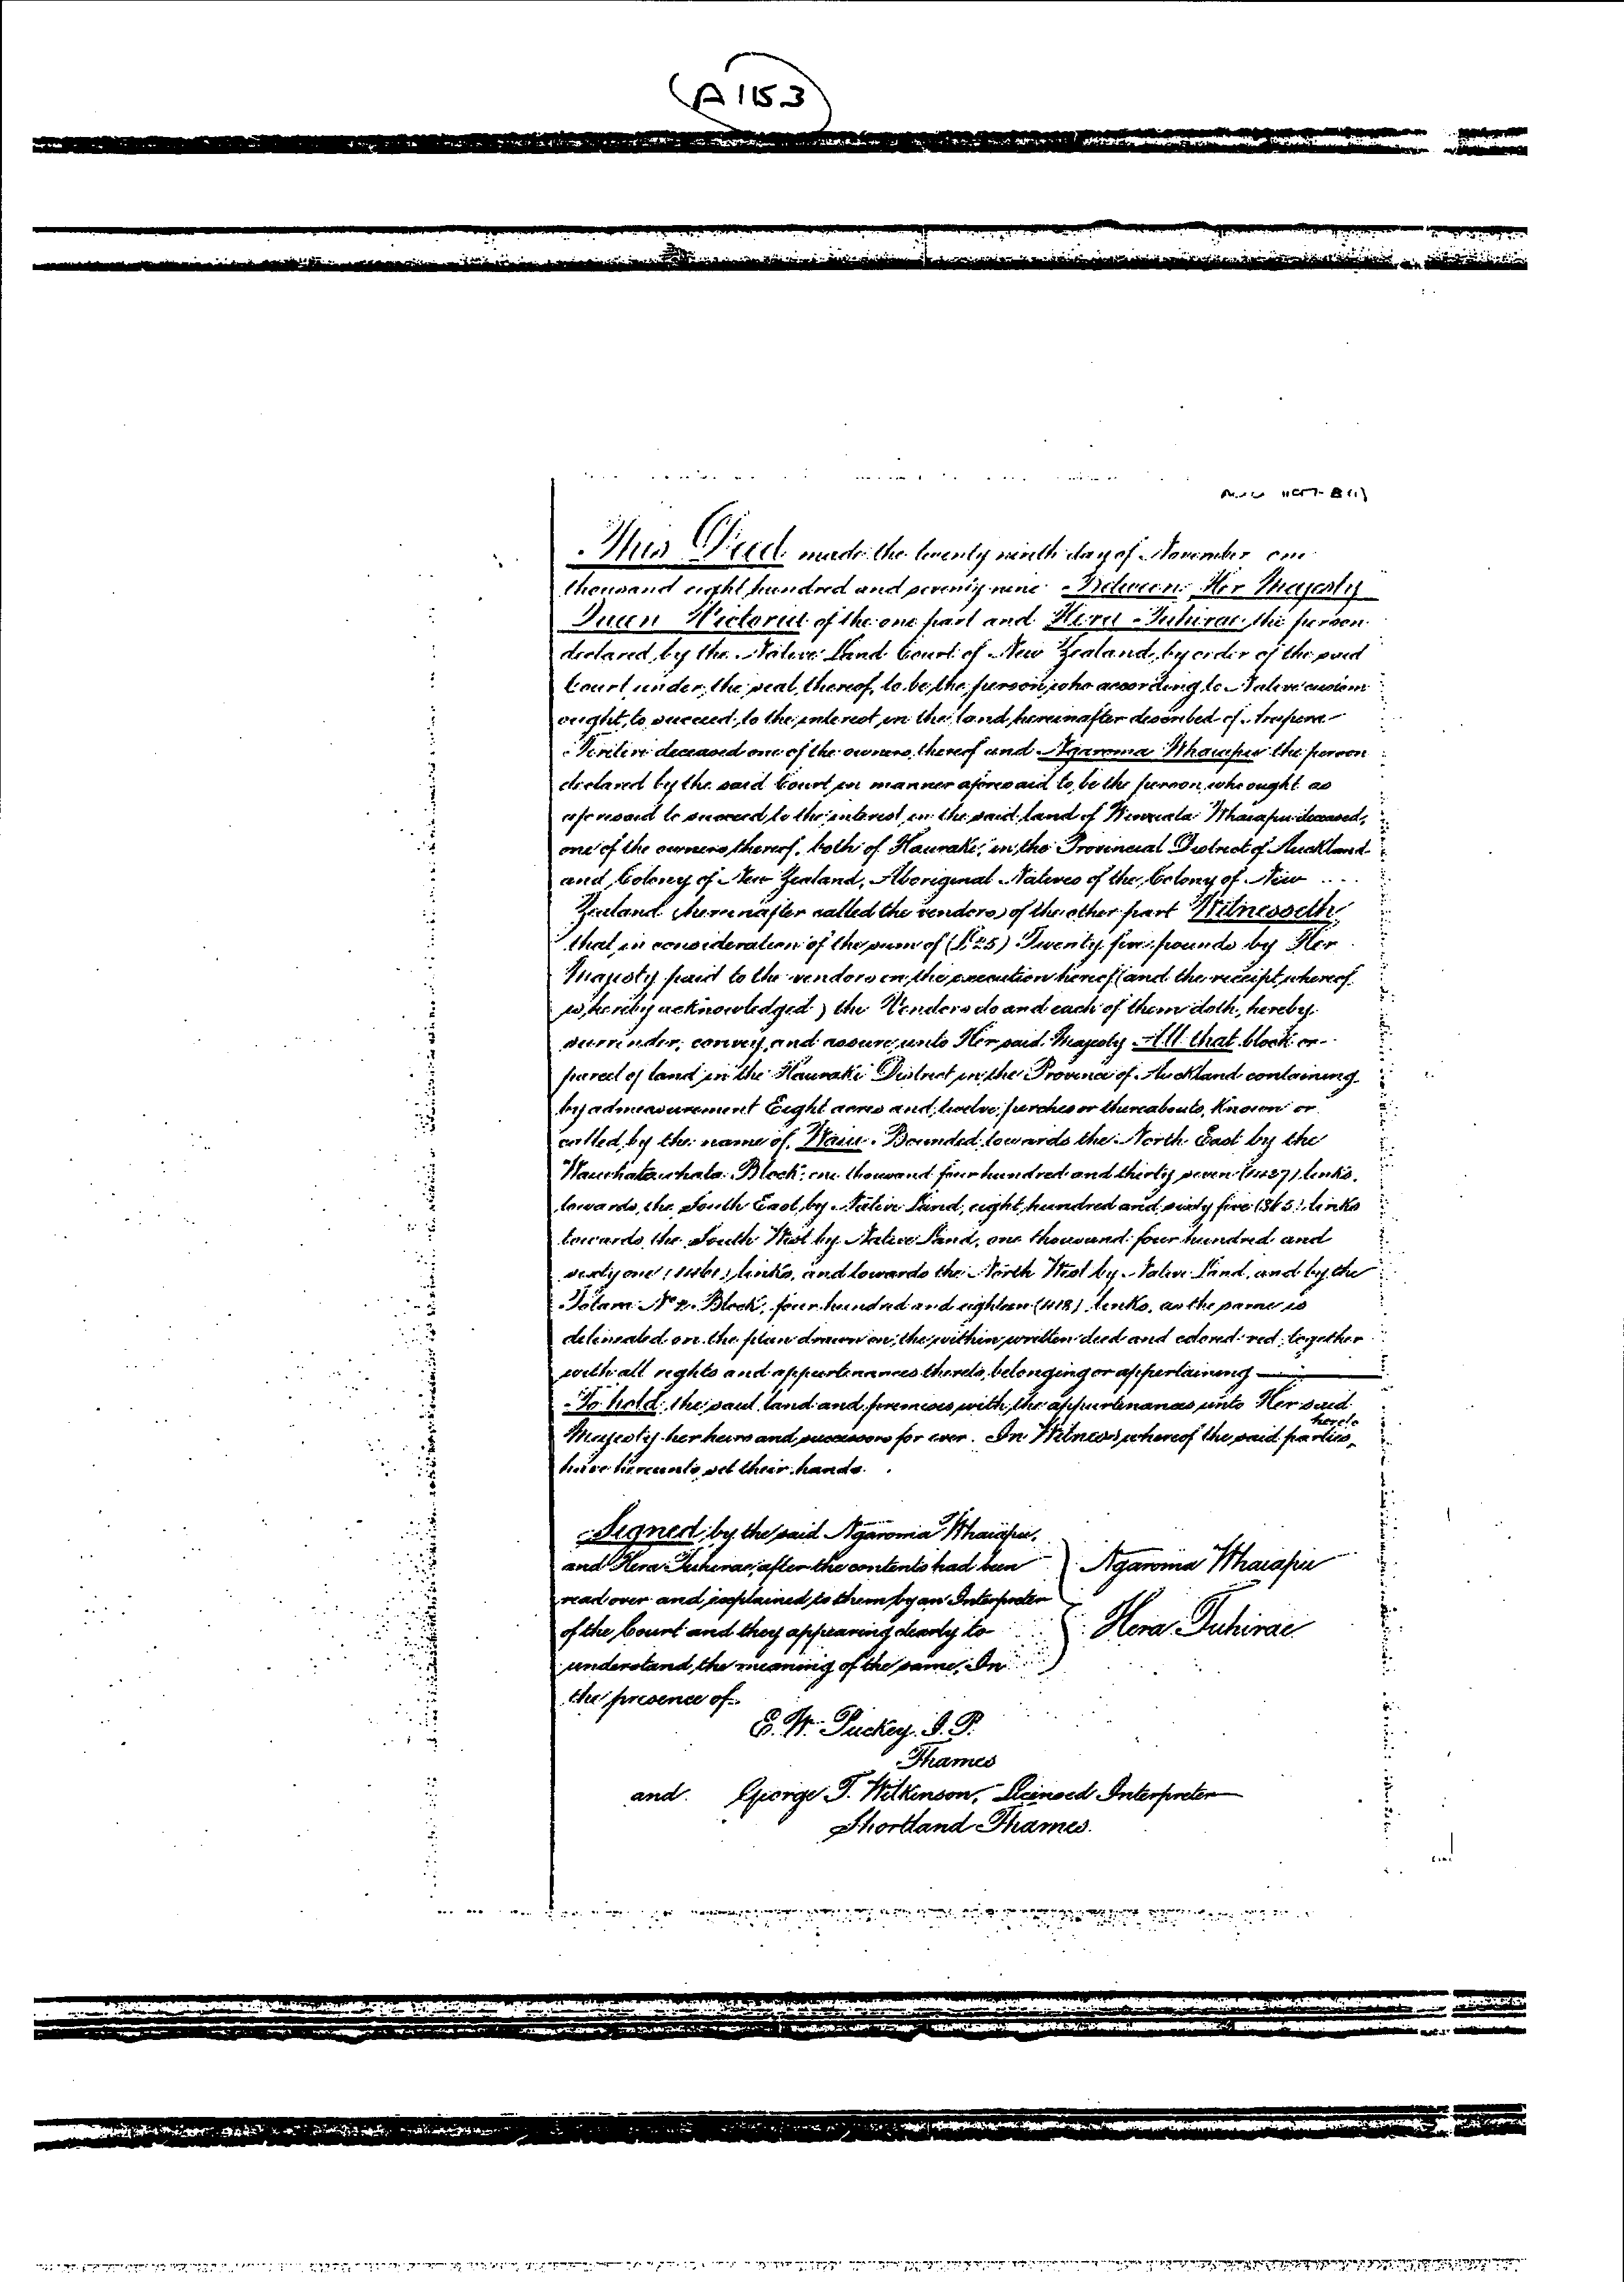 A1153
This Deed made the twenty ninth day of November one
thousand eight hundred and seventy nine Between Her Majesty
Queen Victoria of the one part and Hera Tuhirae the person
declared by the Native Land Court of New Zealand, by order of the said
Court under the seal thereof, to be the person who according to Native custom
ought to succeed to the interest in the land hereinafter described of
deceased one of the owners thereof and Ngaroma Whaiapu the person
declared by the said Court in manner aforesaid to be the person who ought as
aforesaid to succeed to the interest in the said land of Whaiapu deceased,
one of the owners thereof, both of Hauraki, in the Provincial District of Auckland
and Colony of New Zealand, Aboriginal Natives of the Colony of New
Zealand (hereinafter called the vendors) of the other part Witnesseth
that in consideration of the sum of (£25) Twenty five pounds by Her
Majesty paid to the vendors on the execution hereof (and the receipt whereof
is hereby acknowledged) the Vendors do and each of them doth, hereby
surrender, convey, and assure unto Her said Majesty All that block or
parcel of land in the Hauraki District in the Province of Auckland containing
by admeasurement Eight acres and twelve perches or thereabouts, Known or
called by the name of Waiu. Bounded towards the North East by the
Block, one thousand four hundred and thirty seven (1437) links,
towards the South East, by Native Land, eight hundred and sixty five (865) links
towards the South West by Native Land, one thousand four hundred and
sixty one (1461) links, and towards the North West by Native Land, and by the
No 2 Block, four hundred and eighteen (418) links, as the same is
delineated on the plan drawn on the within written deed and colored red together
with all rights and appurtenances thereto belonging or appertaining
To hold the said land and premises with the appurtenances unto Her said
Majesty her heirs and successors for ever. In Witness whereof the said parties hereto
have hereunto set their hands.
Signed by the said Ngaroma Whaiapu,
and Hera Tuhirae, after the contents had been
read over and explained to them by an Interpreter
of the Court and they appearing clearly to
understand the meaning of the same, In
the presence of
Ngaroma Whaiapu
Hera Tuhirae
E. W. Puckey. J. P.
Thames
and George T. Wilkinson, Licensed Interpreter
Shortland Thames.